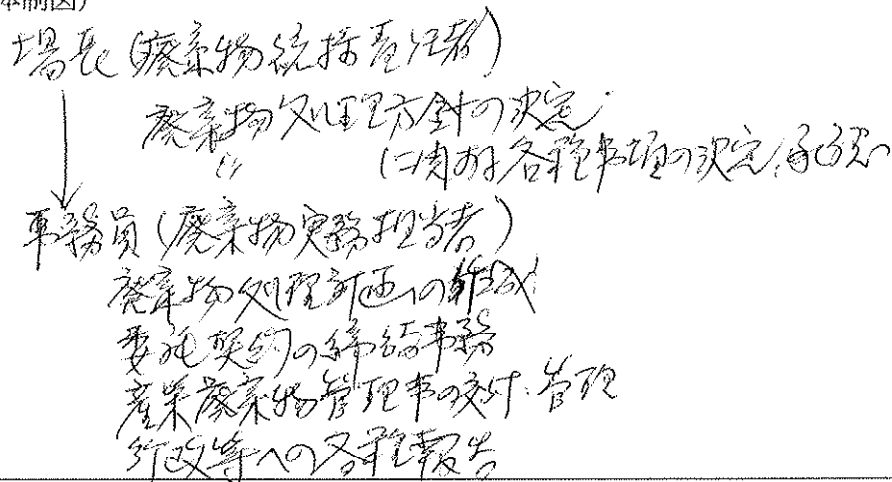 体制図)
場長(廃棄物統括責任者)
廃棄物処理方針の決定
〃 に関する各種事項の決定、承認
事務員(廃棄物実務担当者)
廃棄物処理計画の作成
委託契約の締結事務
産業廃棄物管理票の交付、管理
行政等への各種報告